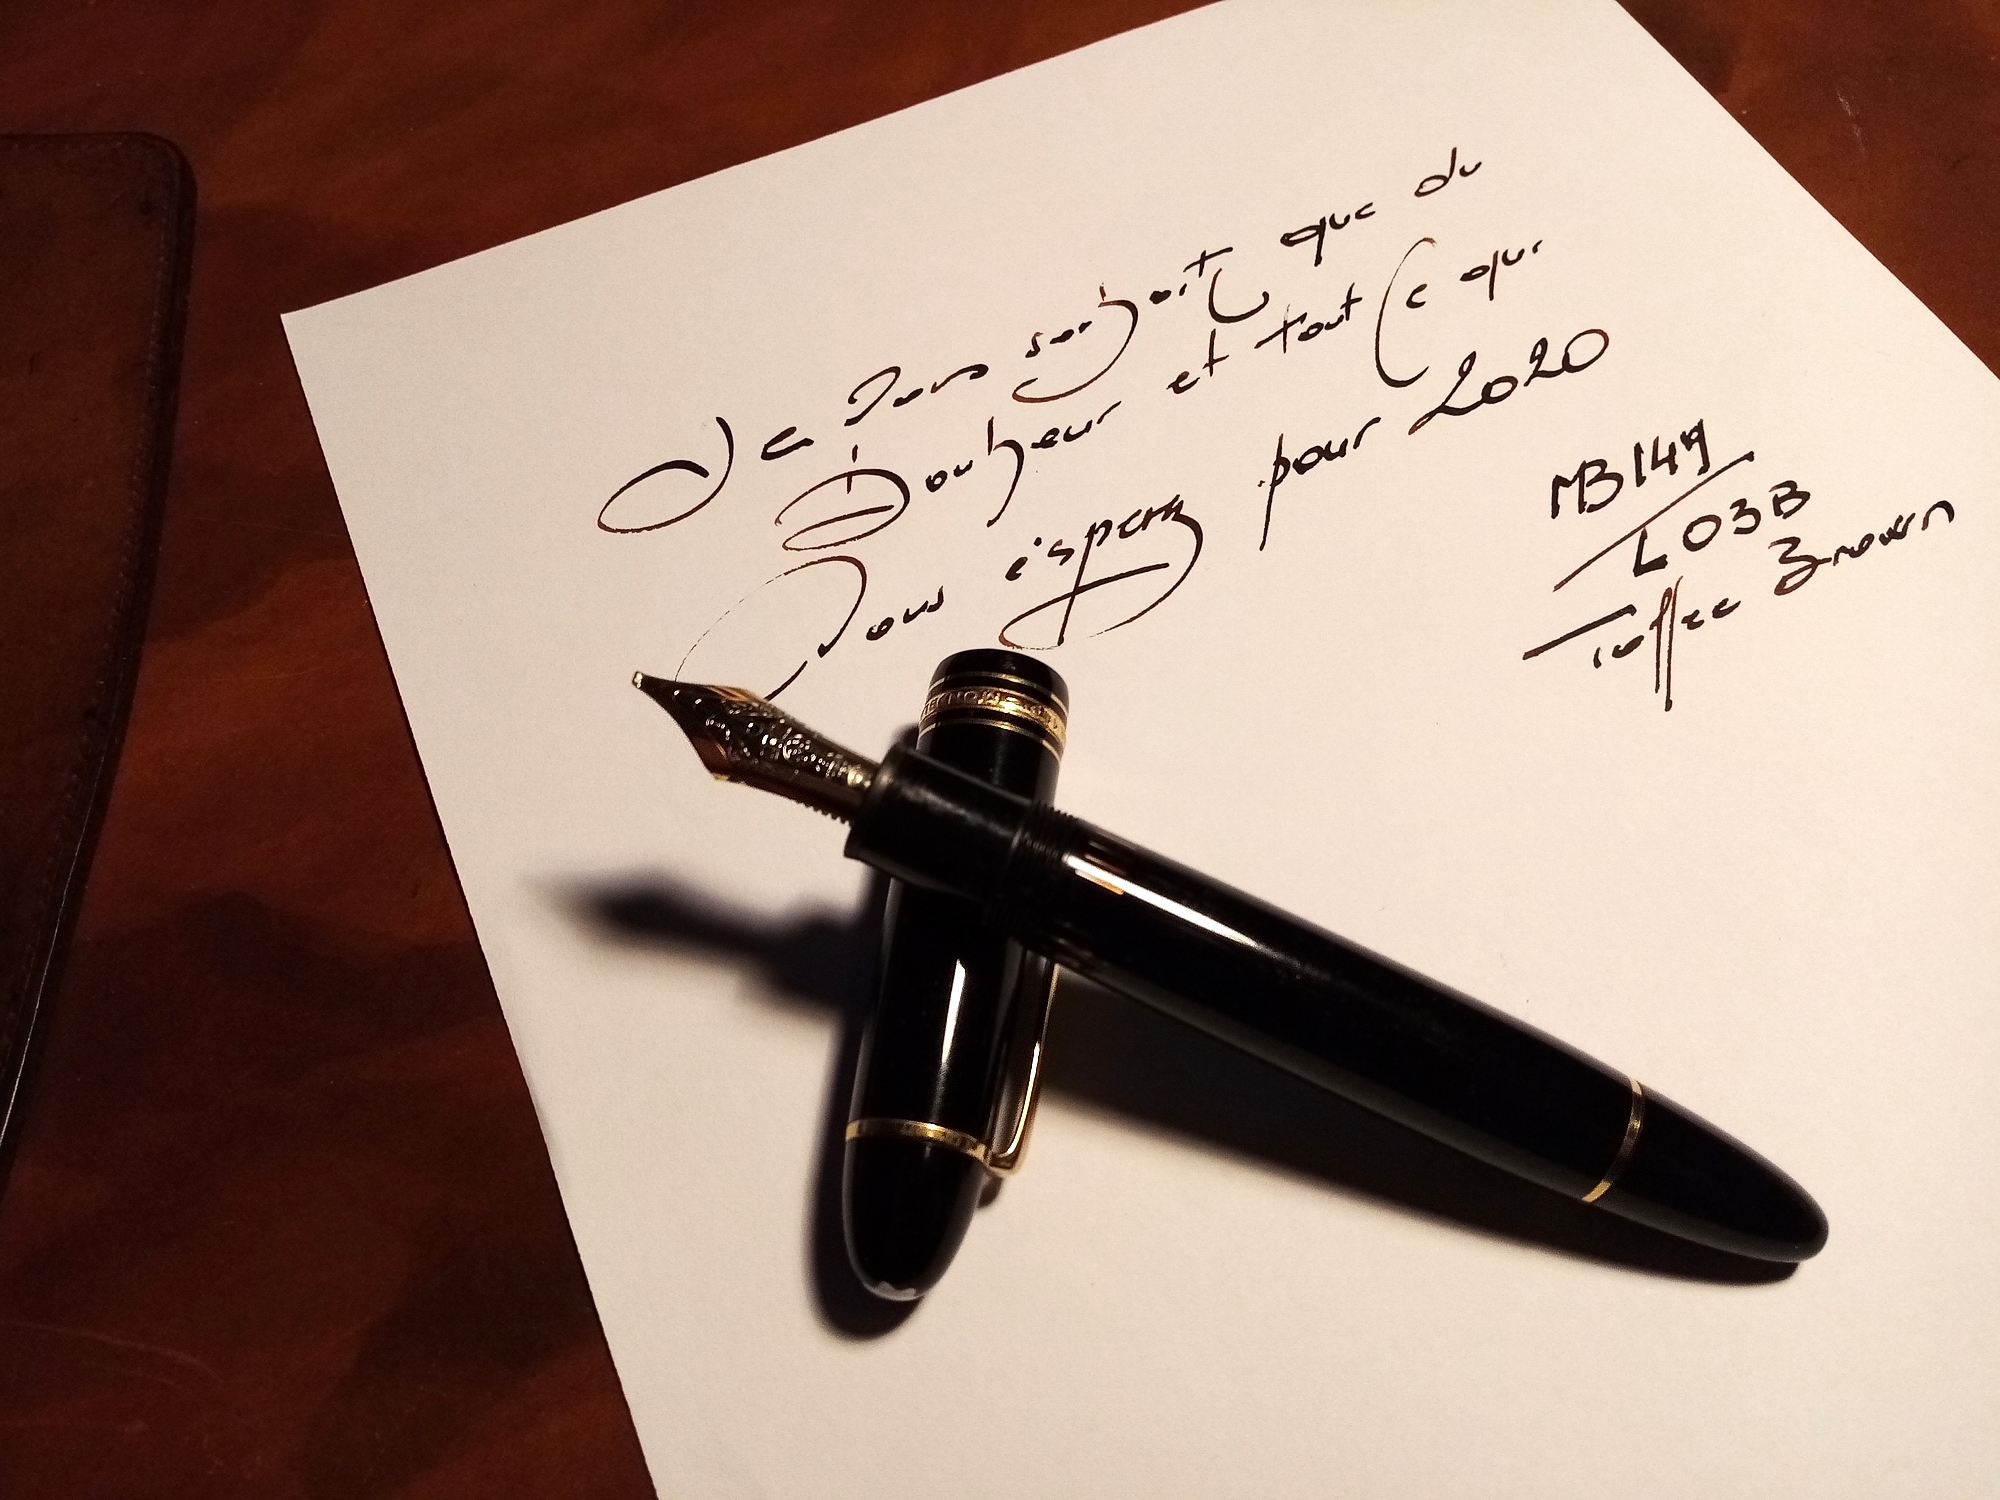 Je vous souhait que du
bonheur et tout ce que
vous éspérez pour 2020
MB149
LO3B
Toffee Brown